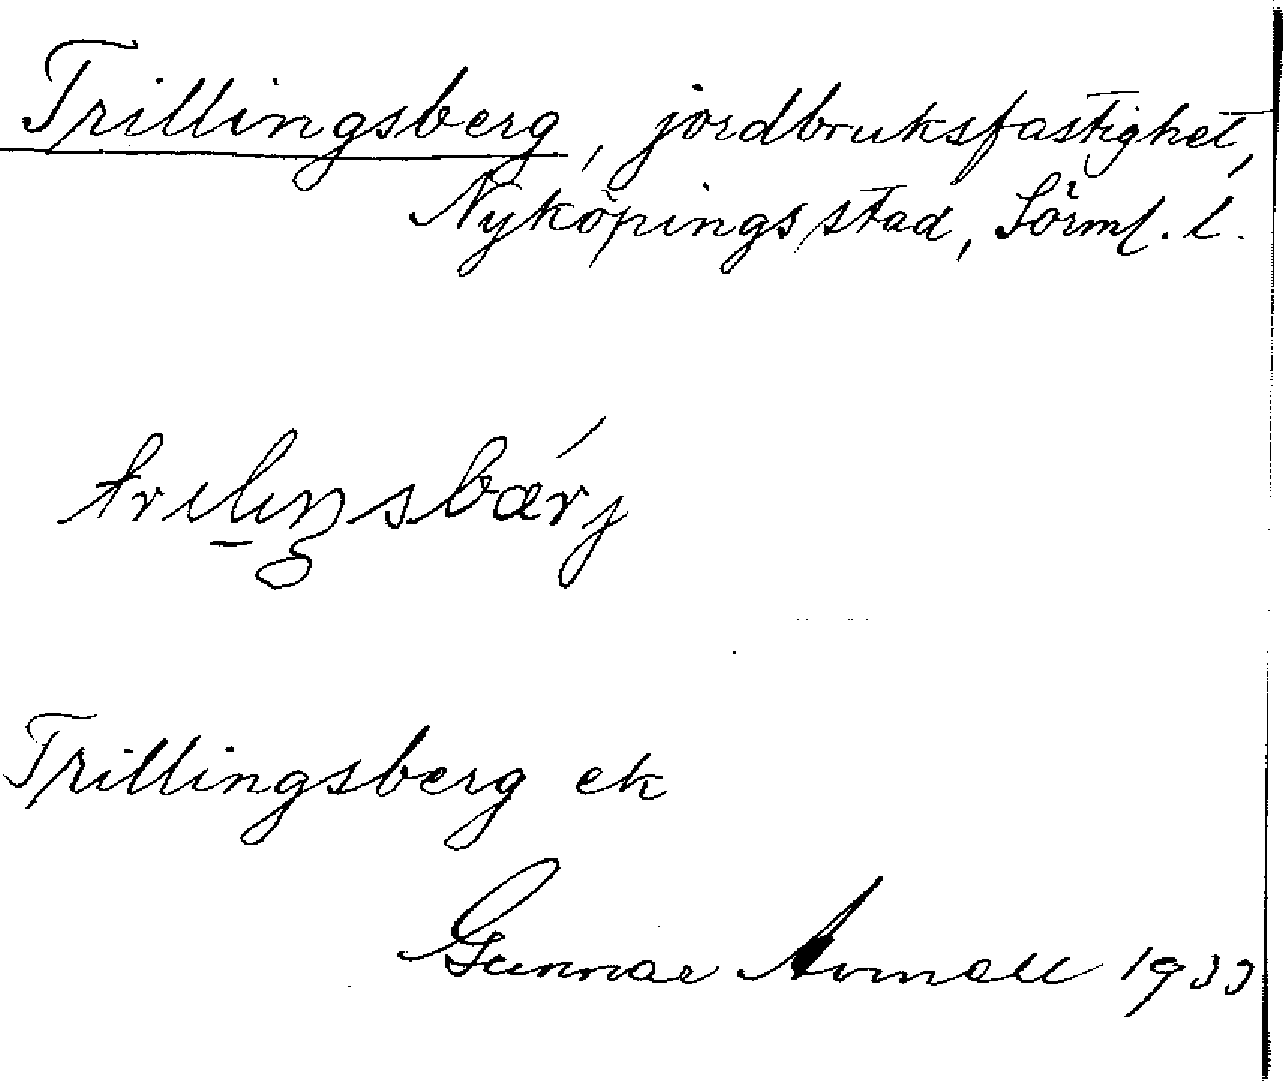 Trillingsberg, jordbruksfastighet,
Nyköpings stad, Sörml. l.
trilıŋsbærj
Trillingsberg ek
Gunnar 1933